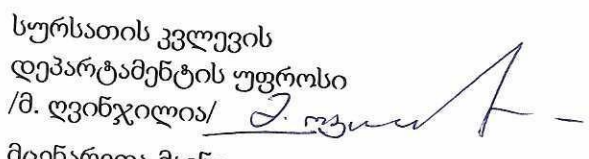 სურსათის კვლევის
დეპარტამენტის უფროსი
/მ. ღვინჯილია/
მცენარეთა